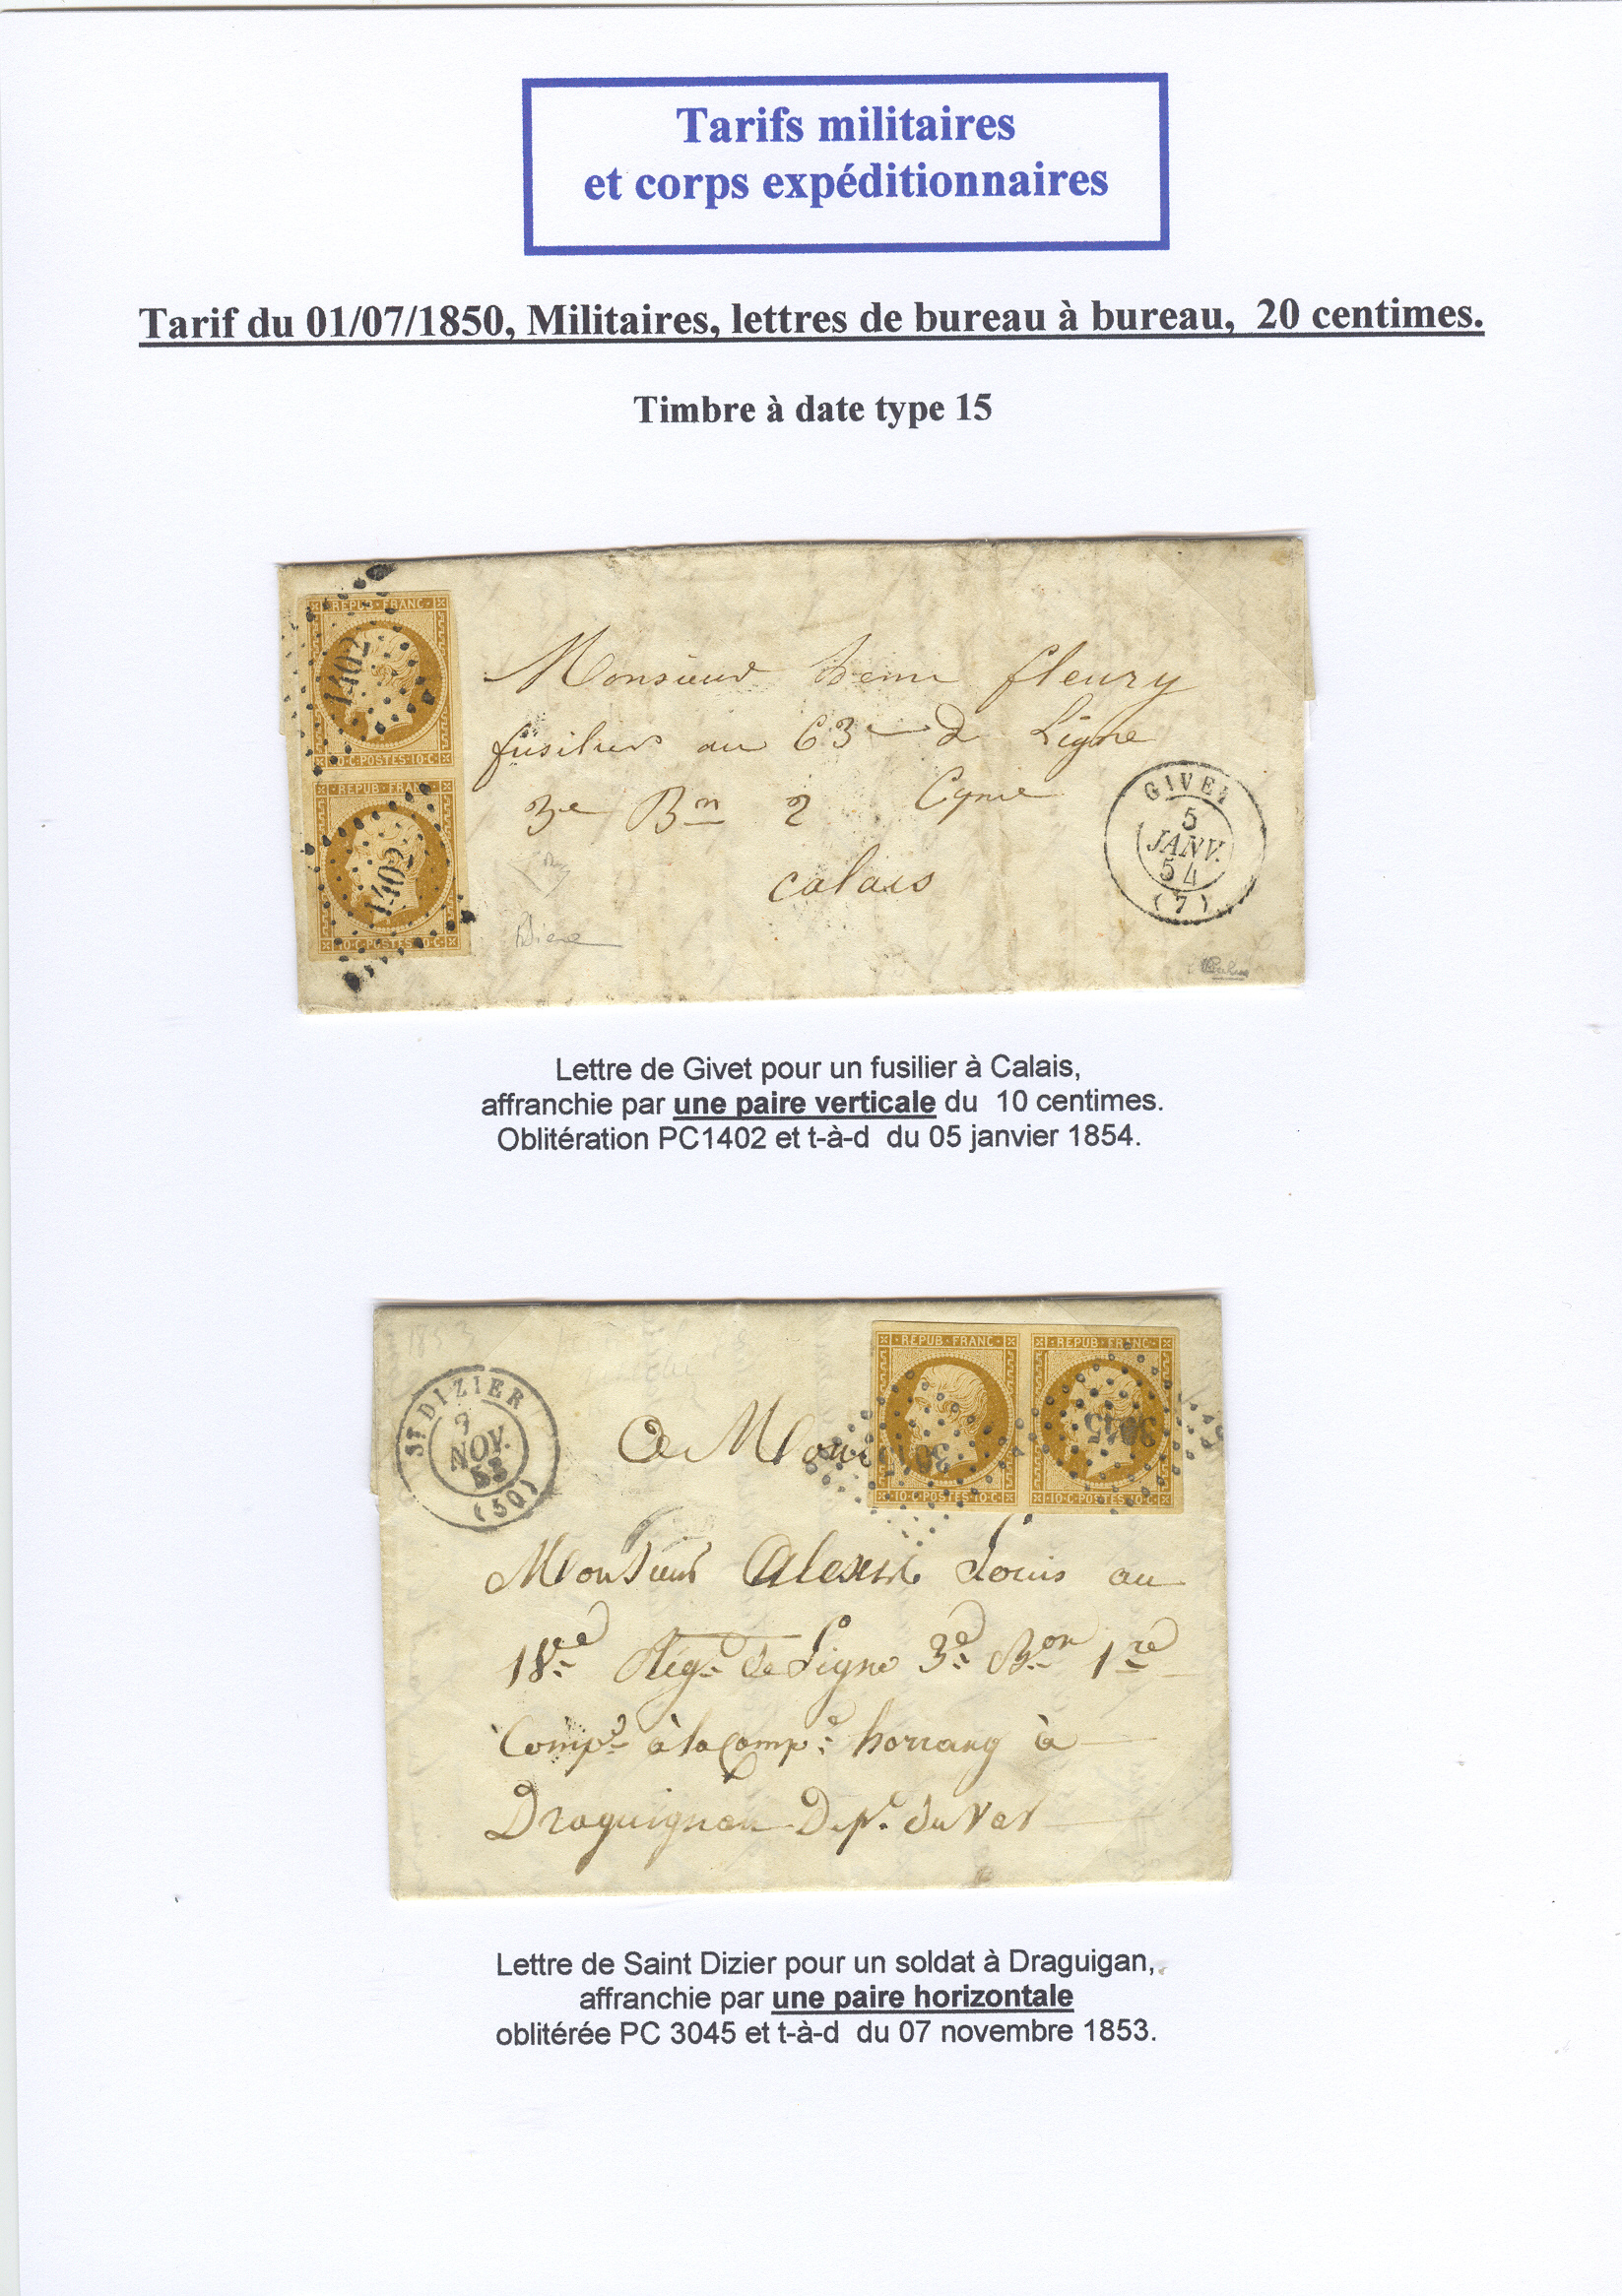 Tarifs militaires
et corps expéditionnaires
Tarif du 01/07/1850, Militaires, lettres de bureau à bureau, 20 centimes.
Timbre à date type 15
REPUB FRANC
1402
10·C·POSTES·10·C
REPUB FRANC
1402
10·C·POSTES·10·C
Monsieur henri fleury
fusilier au 63me de Ligne
3e Bon 2 Cgnie
calais
GIVET
5
JANV.
54
(7)
Lettre de Givet pour un fusilier à Calais,
affranchie par une paire verticale du 10 centimes.
Oblitération PC1402 et t-à-d du 05 janvier 1854.
1853
ST DIZIER
NOV.
53
(50)
REPUB·FRANC REPUB·FRANC
10·C·POSTES·10·C 10·C·POSTES·10·C
A Mon
Monsieur Alexis Louis au
18e Régt de Ligne 3e Bon 1re
Compe à la Compe horrang à
Draguignan Dept du Var
Lettre de Saint Dizier pour un soldat à Draguigan,
affranchie par une paire horizontale
oblitérée PC 3045 et t-à-d du 07 novembre 1853.